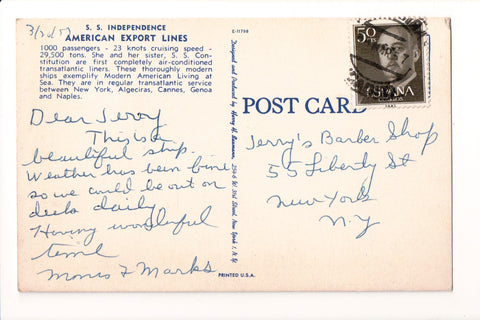 3/20/57
S. S. INDEPENDENCE
AMERICAN EXPORT LINES
1000 passengers - 23 knots cruising speed -
29,500 tons. She and her sister, S. S. Con-
stitution are first completely air-conditioned
transatlantic liners. These thoroughly modern
ships exemplify Modern American Living at
Sea. They are in regular transatlantic service
between New York, Algeciras, Cannes, Genoa
and Naples.
Dear Jerry
This is a
beautiful ship.
Weather has been fine
so we could be out on
decks daily.
Having wonderful
time
Morris & Marks
E-11798
Designed and Produced by Harry H. Baumann, 216 W. 23rd Street, New York 1, N.Y.
PRINTED U.S.A.
POST CARD
50
ESPAÑA
CORREOS
Jerry's Barber Shop
55 Liberty St
New York
N.Y